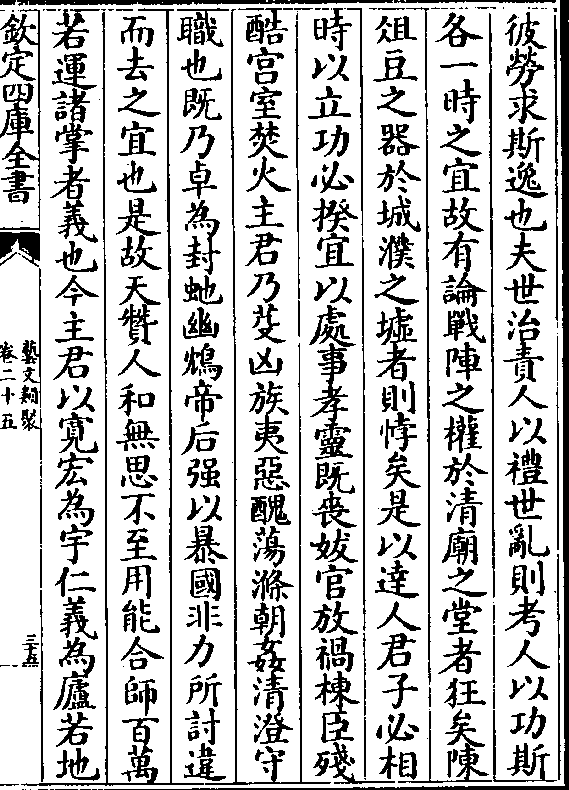 彼勞求斯逸也夫世治責人以禮世亂則考人以功斯
各一時之宜故有論戰陣之權於清廟之堂者狂矣陳
俎豆之器於城濮之墟者則悖矣是以達人君子必相
時以立功必揆宜以處事孝靈既喪妭官放禍棟臣殘
酷宫室焚火主君乃芟凶族夷惡醜蕩滌朝姦清澄守
職也既乃卓為封虵幽鴆帝后强以暴國非力所討違
而去之宜也是故天贊人和無思不至用能合師百萬
若運諸掌者義也今主君以寛宏為宇仁義為廬若地
欽定四庫全書
藝文類聚
卷二十五
三十五